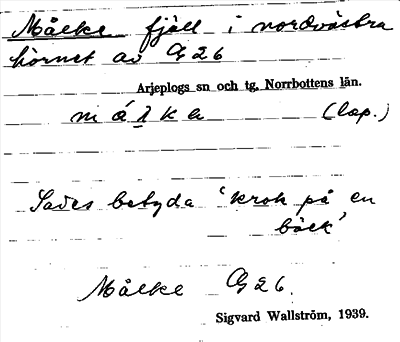 Målke fjäll i nordvästra
hörnet av G 26
Arjeplogs sn och tg. Norrbottens län.
málka (lap.)
Sades betyda 'krok på en
bäck'
Målke G 26.
Sigvard Wallström, 1939.